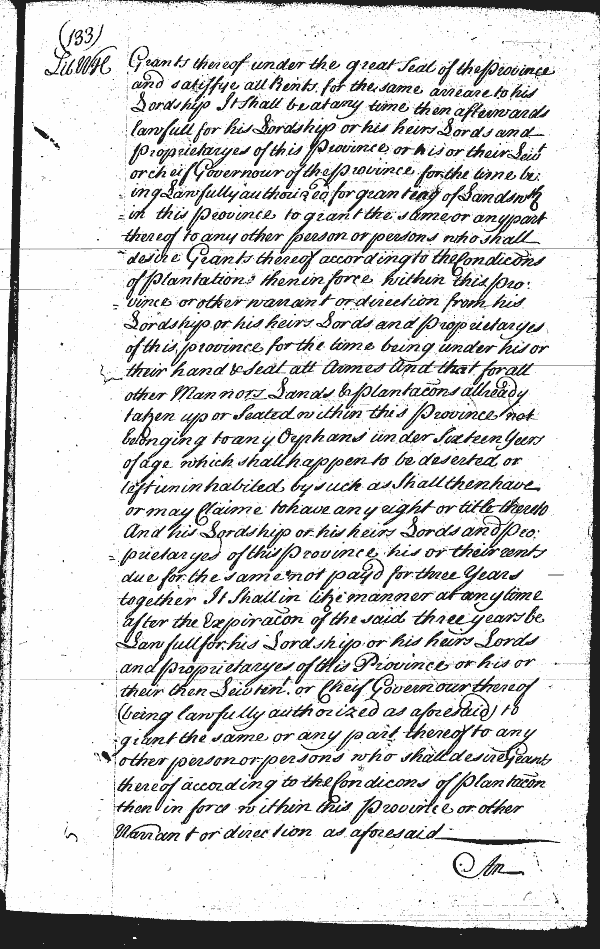 (133)
Lib W H
Grants thereof under the great Seal of the Province
and satisffye all Rents for the same arreare to his
Lordship It shall be at any time then afterwards
lawfull for his Lordship or his heirs Lords and
Proprietaryes of this Province or his or their Leivt
or cheif Governour of the Province for the time be:
ing Lawfully authorized for granting of Lands wth
in this Province to grant the same or any part
thereof to any other person or persons who shall
desire Grants thereof according to the Condicons
of Plantations then in force within this Pro:
vince or other warrant or direction from his
Lordship or his heirs Lords and Proprietaryes
of this province for the time being under his or
their hand & Seal att Armes And that for all
other Mannors Lands & Plantacons allready
taken up or Seated within this Province not
belonging to any Orphans under Sixteen Years
of age which shall happen to be deserted or
left uninhabited by such as Shall then have
or may Claime to have any right or title thereto
And his Lordship or his heirs Lords and Pro:
prietaryes of this Province his or their rents
due for the same not payd for three Years
together It Shall in like manner at any time
after the Expiracon of the said three years be
Lawfull for his Lordship or his heirs Lords
and Proprietaryes of this Province or his or
their then Leivtent. or Cheif Governour thereof
(being lawfully authorized as aforesaid) to
grant the same or any part thereof to any
other person or persons who shall desire Grants
thereof according to the Condicons of Plantacon
then in force within this Province or other
Warrant or direction as aforesaid
An